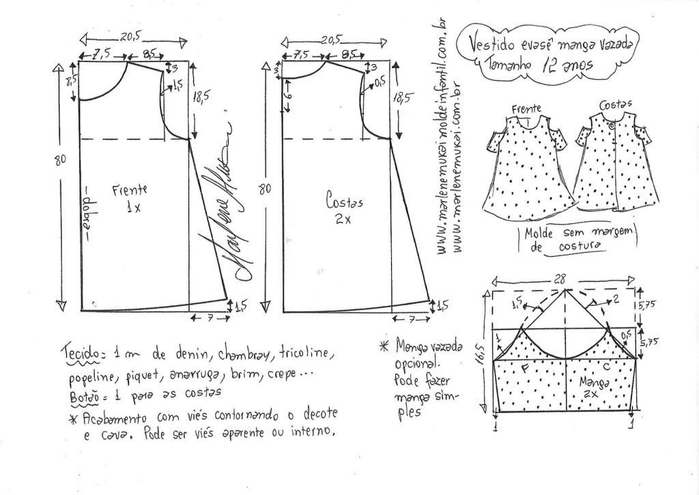 Vestido evasê manga vazada
Tamanho 12 anos
www.marlenemukaimoldeinfantil.com.br
www.marlenemukai.com.br
20,5
7,5
8,5
8,5
3
1,5
18,5
80
Frente
1x
-dobra-
1,5
7
Marlene Mukai
20,5
7,5
8,5
3
3
9
0,5
18,5
80
Costas
2x
1,5
7
Frente
Costas
Molde sem margem
de costura
28
1,5
2
5,75
5,75
1
0,5
16,5
F
C
Manga
2x
1
1
Tecido= 1 m de denin, chambray, tricoline,
popeline, piquet, anarruga, brim, crepe...
Botão= 1 para as costas
* Acabamento com viés contornando o decote
e cava. Pode ser viés aparente ou interno.
* Manga vazada
opcional.
Pode fazer
manga sim-
ples